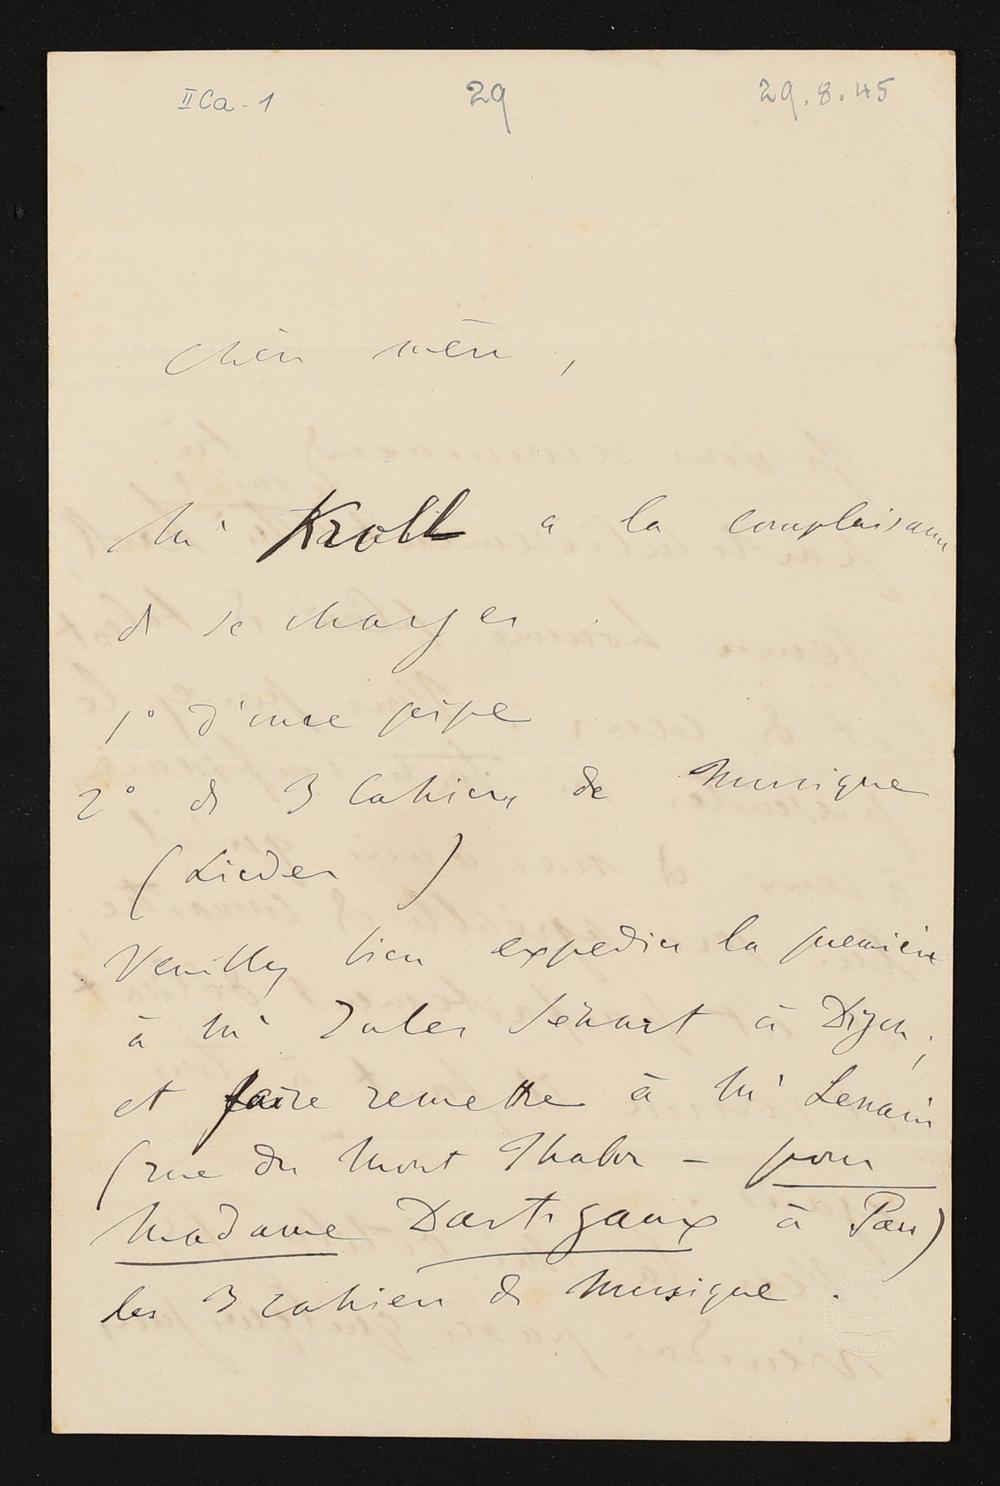 IICa-1 29 29.8.45
Chère mère,
Mr Kroll a la complaisance
de se charger
1° d'une pipe
2° de 3 Cahiers de Musique
(Lieder)
Veuillez bien expedier la première
à Mr Jules Sénart à Dijon;
et faire remettre à Mr Lenain
(rue du Mont Thabor – pour
Madame Dartigaux à Pau)
les 3 cahiers de Musique.